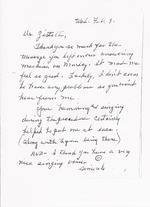 Wed. Feb. 9.
Thank you so much for the
message you left on our answering
machine on Monday. It made me
feel so good. Luckily, I don't seem
to have any problems so you won't
hear from me.
Your humming & singing
during the procedure certainly
helped to put me at ease.
(along with Lynn being there)
AND - I think you have a very
nice singing voice.